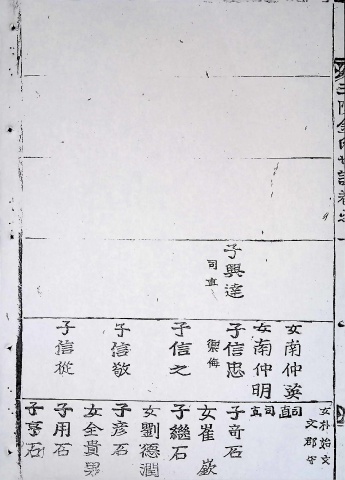 金氏世譜卷之
子興達
司直
女南仲英
司直
女南仲明
司直
子信忠
禦侮
子信之
子信敬
子信從
女朴始文
文郡守
子奇石
女崔嶔
子繼石
女劉德潤
子彦石
女全貴男
子用石
子亨石